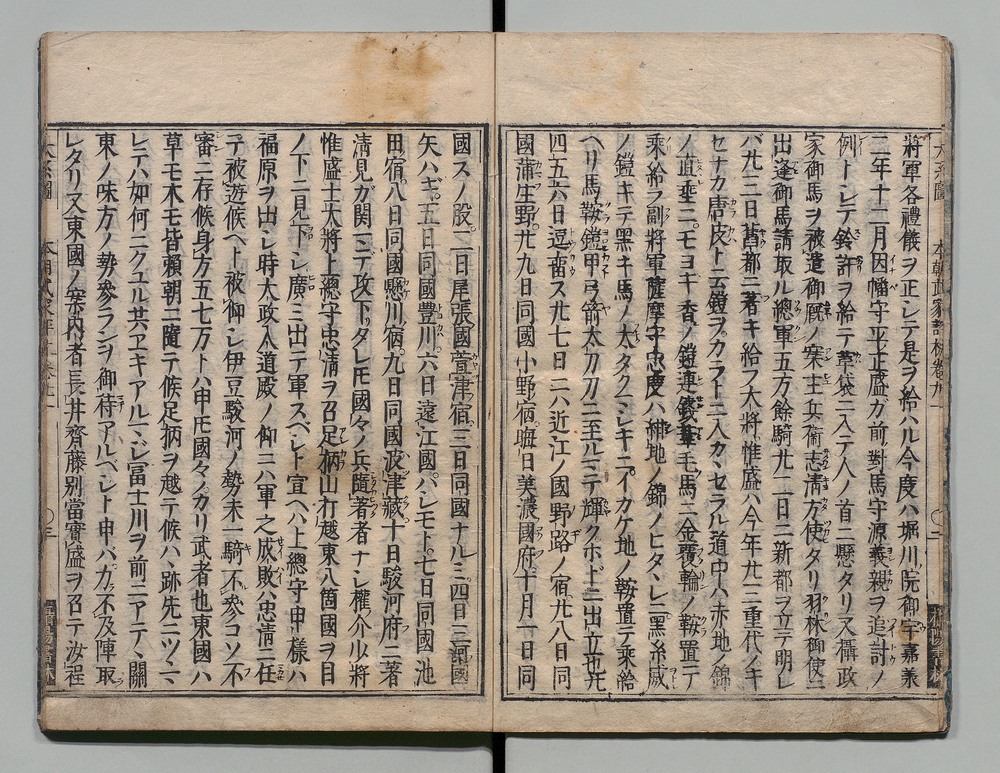 將軍各禮儀ヲ正シテ是ヲ給ハル今度ハ堀川ノ院御宇嘉義
二年十二月因幡守平ノ正盛ガ前ノ對馬守源義親ヲ追討ノ
例トシテ鈴許ヲ給テ革袋ニ入テ人ノ首ニ懸タリ又攝政
家御馬ヲ被遣御厩ノ案主兵衛志清方使タリ羽林御使ニ
出逢御馬請取ル總軍五万餘騎廿二日ニ新都ヲ立テ明レ
バ廿三日舊都ニ著キ給フ大將惟盛ハ今年廿三重代ノキ
セナカ唐皮ト云鎧ヲカラトニ入カヽセラル道中ハ赤地ノ錦
ノ直垂ニモヨキ香ノ鎧連錢葦毛馬ニ金覆輪ノ鞍置テ
乘給フ副將軍薩摩守忠慶ハ紺地ノ錦ノヒタヽレニ黑糸威
ノ鎧キテ黑キ馬ノ太クタクマシキニイカケ地ノ鞍置テ乘給
ヘリ馬鞍鎧甲弓箭太刀刀ニ至ルマデ輝クホドニ出立也廿
四五六日逗畱ス廿七日ニ六近江ノ國野路ノ宿廿八日同
國蒲生野廿九日同國小野宿晦日美濃國府十月一日同
國スノ股二日尾張國萱津宿三日同國ナルミ四日三河國
矢ハギ五日同國豊川六日遠江國パシモト七日同國池
田宿八日同國懸川宿九日同國波津藏十日駿河府ニ著
清見ガ関マデ攻下ッタレ𪜈國々ノ兵隨著者ナシ權介少將
惟盛士大將上總守忠清ヲ召足柄山打越東八箇國ヲ目
ノ下ニ見下シ廣ミニ出テ軍スベシト宣ヘハ上總守申樣ハ
福原ヲ出シ時大政入道殿ノ仰ニハ軍之成敗ハ忠清ニ任
テ被遊候ヘト被仰シ伊豆駿河ノ勢未一騎不參コソ不
審ニ存候身方五七万トハ申𪜈國々ノカリ武者也東國ハ
草モ木モ皆賴朝ニ隨テ候足柄ヲ越テ候ハヽ跡先ニツヽマ
レテハ如何ニクユル共ヱキアルマジ冨士川ヲ前ニアテヽ關
東ノ味方ノ勢參ランヲ御待アルベシト申バ力不及陣取
レタリ又東國ノ案内者長井齊藤別當實盛ヲ召テ汝程